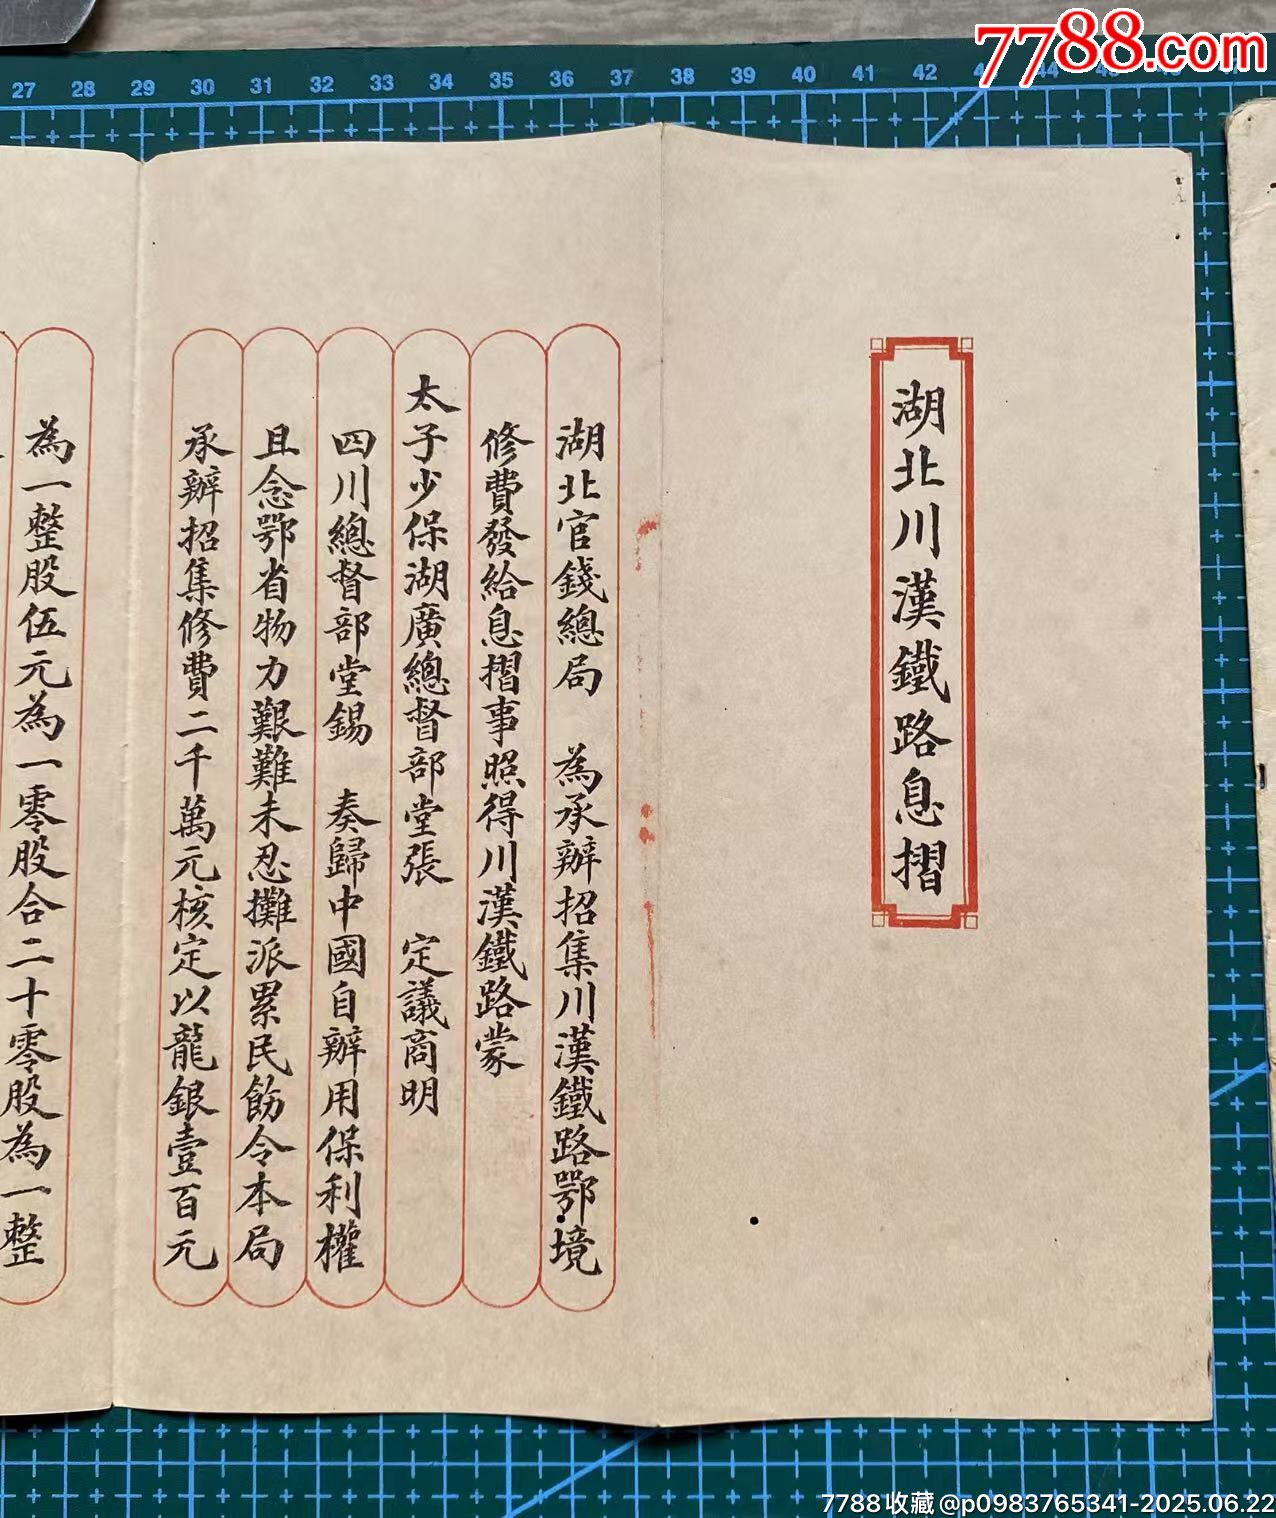 7788.com
27 28 29 30 31 32 33 34 35 36 37 38 39 40 41 42 43 44 45 46
湖北川漢鐵路息摺
湖北官錢總局　為承辦招集川漢鐵路鄂境
修費發給息摺事照得川漢鐵路蒙
太子少保湖廣總督部堂張　定議商明
四川總督部堂錫　奏歸中國自辦用保利權
且念鄂省物力艱難未忍攤派累民飭令本局
承辦招集修費二千萬元核定以龍銀壹百元
為一整股伍元為一零股合二十零股為一整
7788收藏@p0983765341-2025.06.22